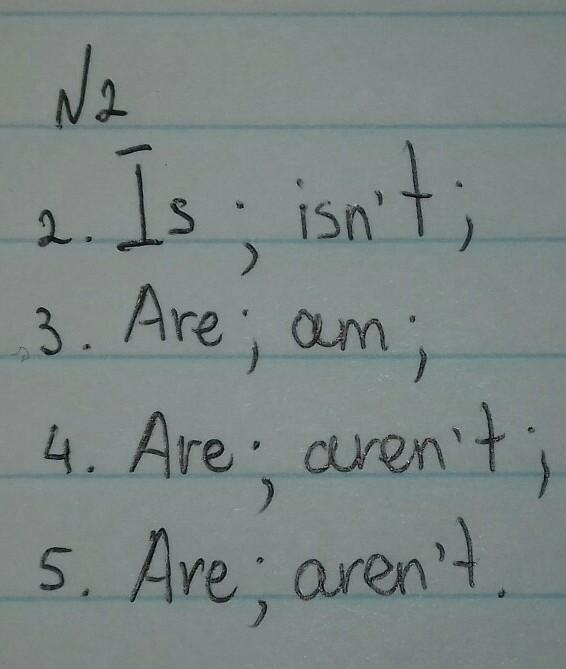 №2
2. Is; isn't;
3. Are; am;
4. Are; aren't;
5. Are; aren't.